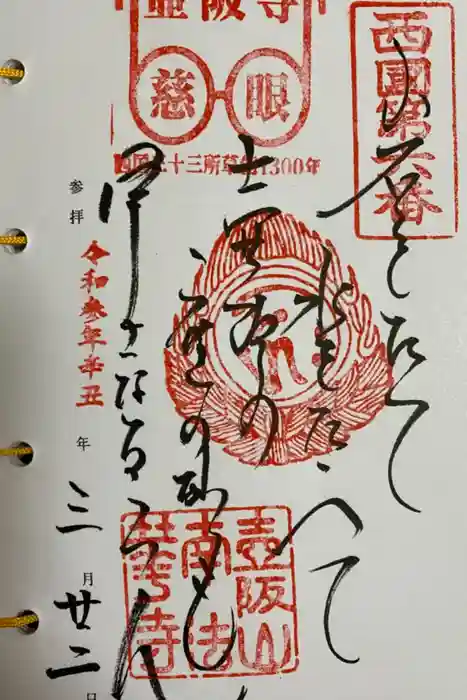 西國第六番
岩をたて
水をたゝへて
壺阪の
庭の砂も
浄土なるらん
壺阪寺
慈眼
西国三十三所草創1300年
壺阪山
南法
華寺
参拝
令和参年辛丑年三月廿二日